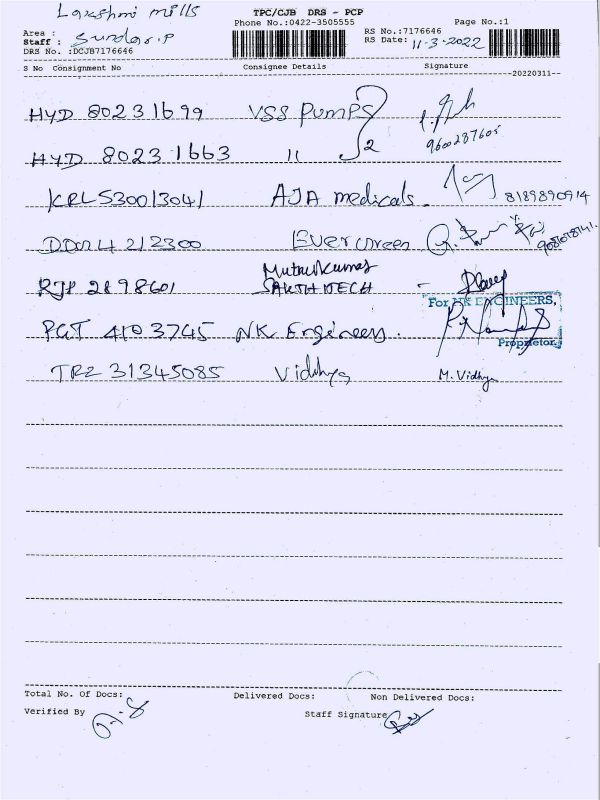 Lakshmi mills
TPC/CJB DRS - PCP
Phone No.:0422-3505555
Page No.:1
Area :
Staff : Sundar.P
DRS No. :DCJB7176646
RS No.:7176646
RS Date: 11-3-2022
S No Consignment No Consignee Details Signature
--20220311--
HYD 80231699 VSS Pumps
9600287605
HYD 80231663 11 2
KRL530013041 AJA medicals. 8189890914
212300 Evergreen
Muthukumar
RJP 2898601 SAKTHI TECH -
For NK ENGINEERS,
PGT 4103745 NK Engineers.
Proprietor
TRZ 31345085 Vidhya M. Vidhya
Total No. Of Docs: Delivered Docs: Non Delivered Docs:
Verified By Staff Signature